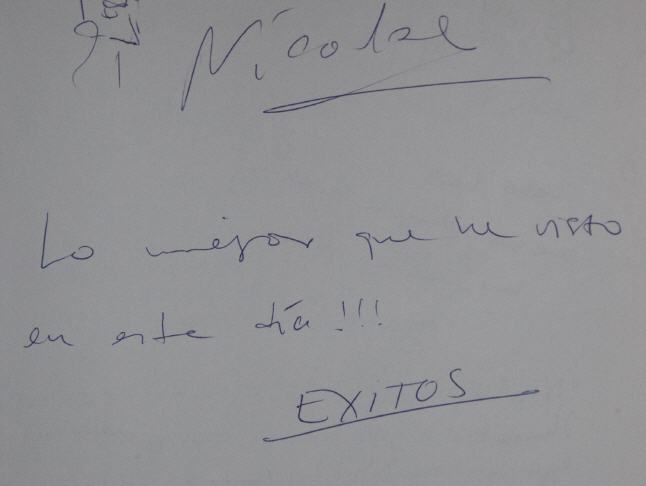 Nicolae
Lo mejor que he visto
en este día !!!
EXITOS